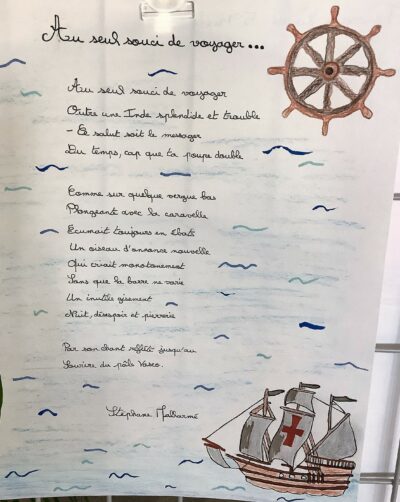 Au seul souci de voyager...
Au seul souci de voyager
Outre une Inde splendide et trouble
- Ce salut soit le messager
Du temps, cap que ta poupe double
Comme sur quelque vergue bas
Plongeante avec la caravelle
Ecumait toujours en ébats
Un oiseau d'annonce nouvelle
Qui criait monotonement
Sans que la barre ne varie
Un inutile gisement
Nuit, désespoir et pierrerie
Par son chant reflété jusqu'au
Sourire du pâle Vasco.
Stéphane Mallarmé